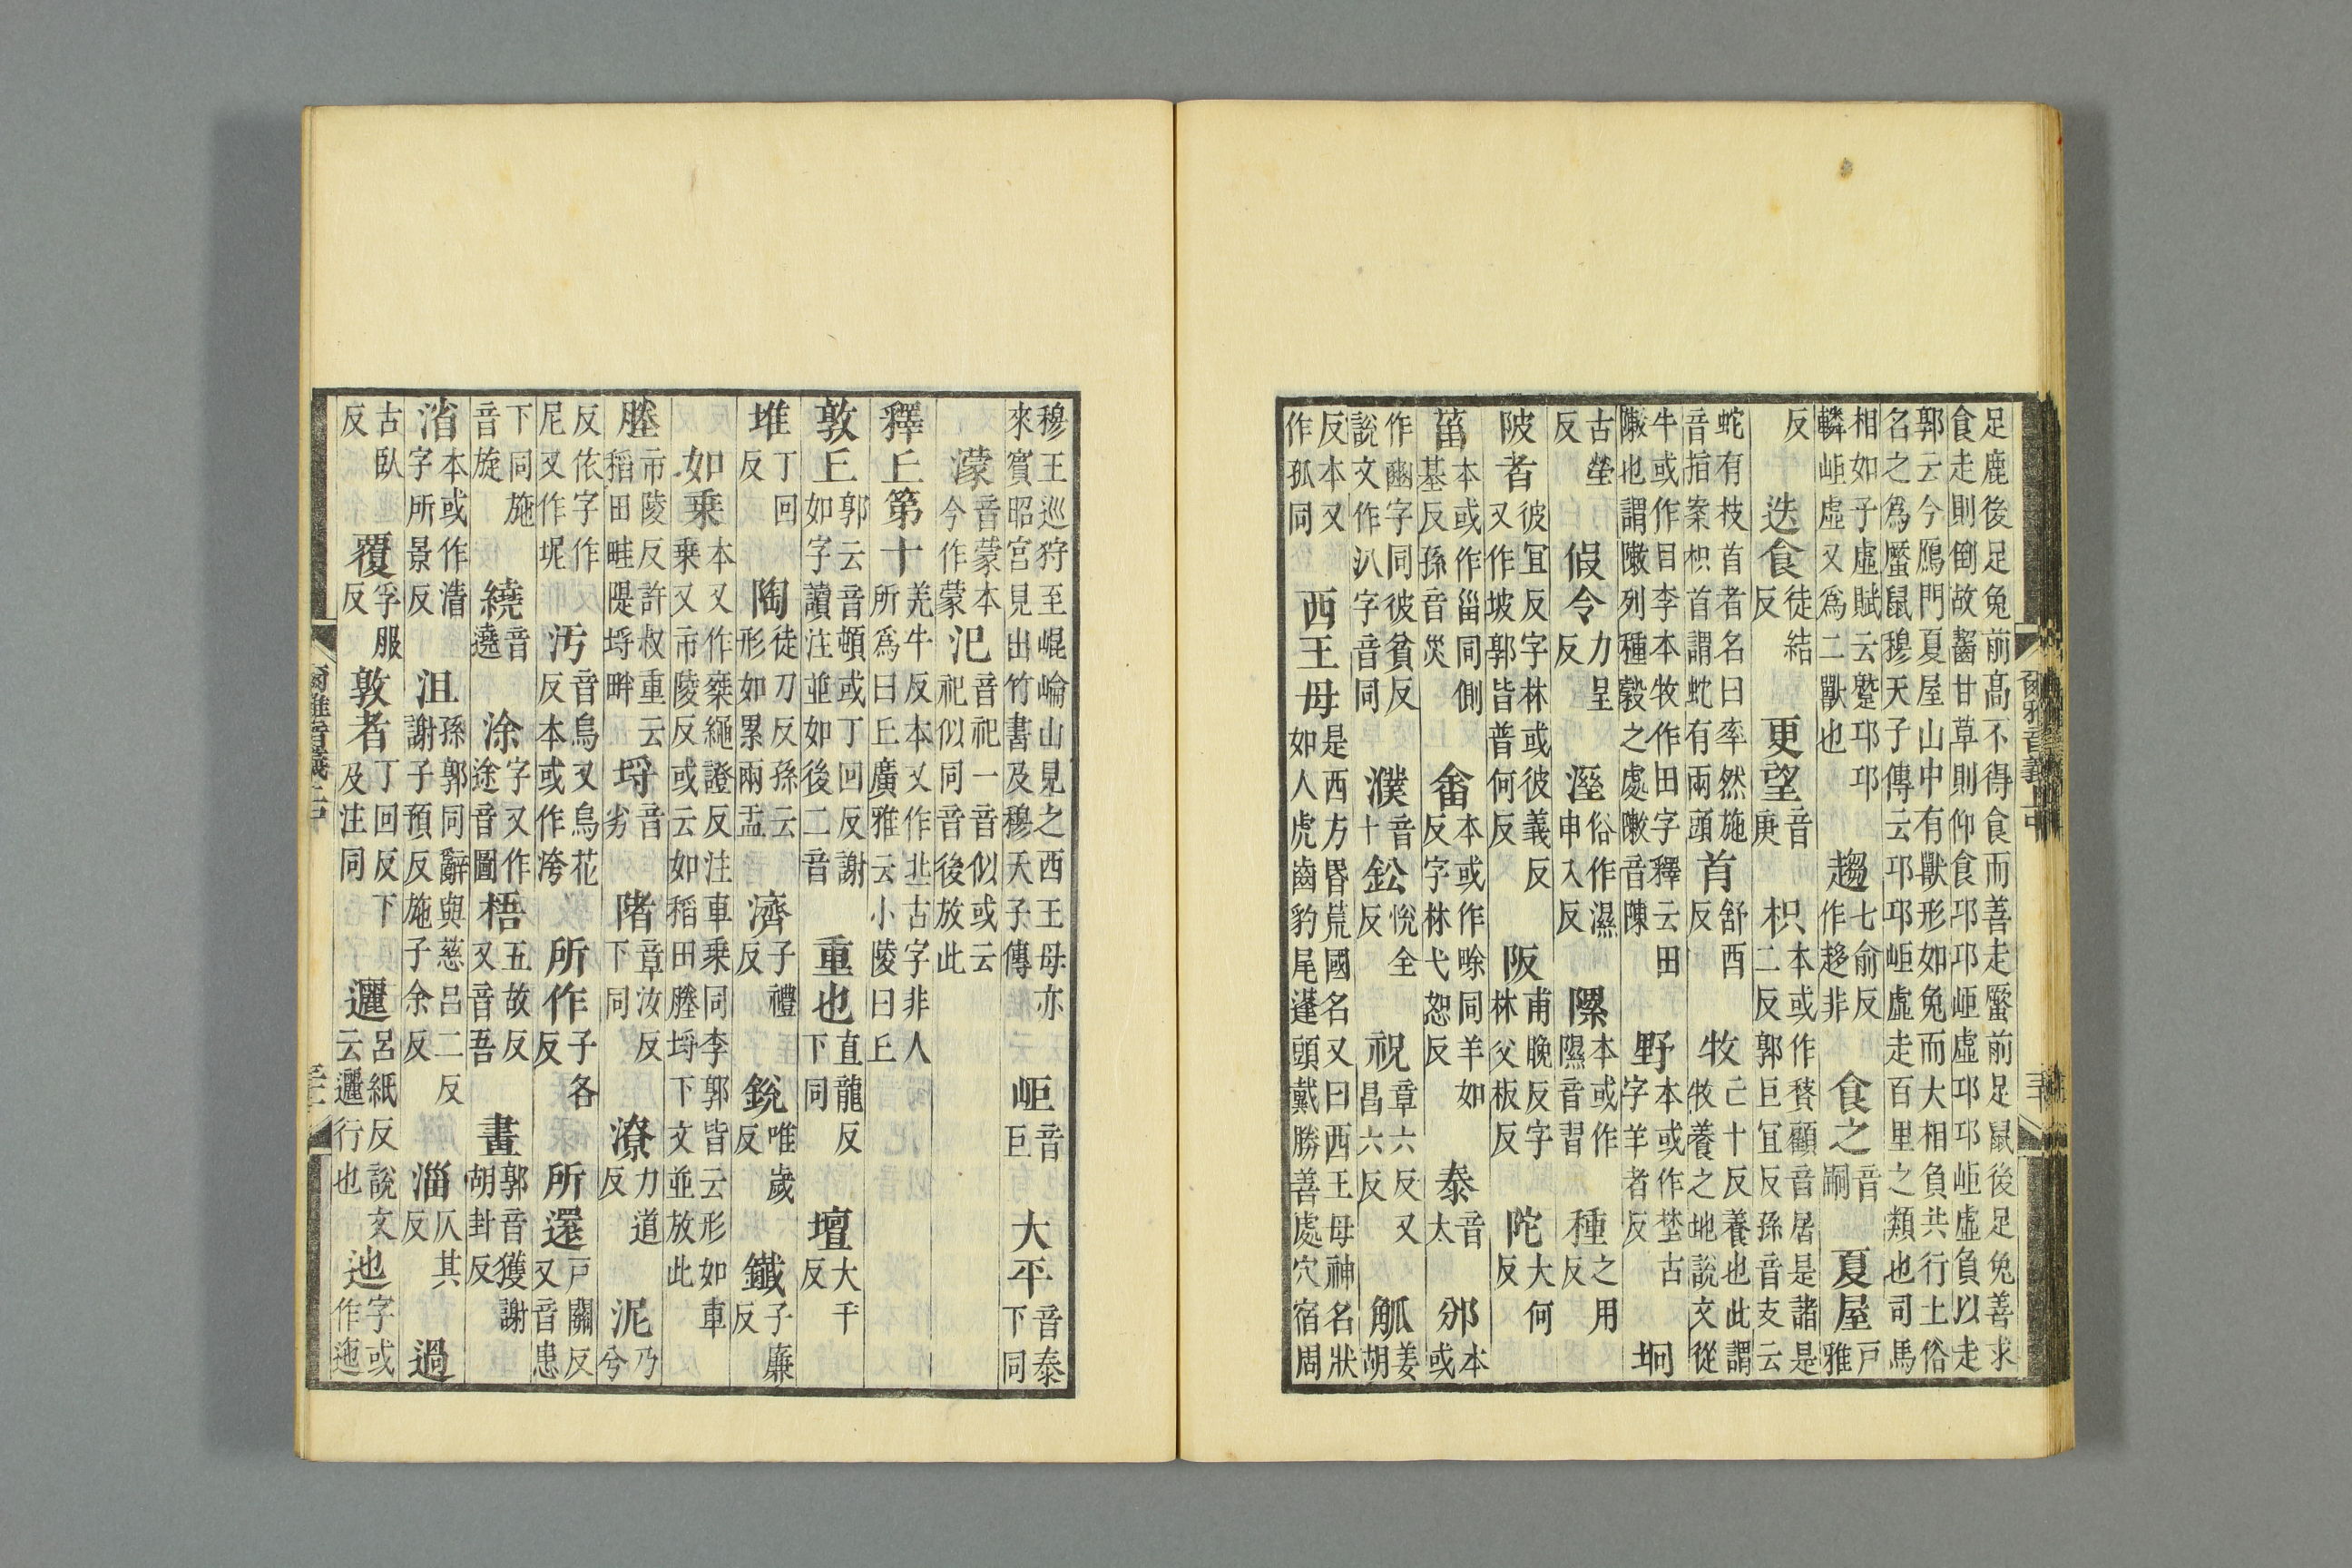 足鹿後足兔前高不得食而善走蟨前足鼠後足兔善求
食走則倒故齧甘草則仰食邛邛岠虛邛邛岠虛負以走
郭云今鴈門夏屋山中有獸形如兔而大相負共行土俗
名之爲蟨鼠穆天子傳云邛邛岠虛走百里之類也司馬
相如子虛賦云蹵邛邛轔岠虛又爲二獸也 趨七俞反作趍非 食之音嗣 夏屋戶雅
反 迭食徒結反 更望音庚 枳本或作顧音居是諸是二反郭巨宜反孫音支云
蛇有枝首者名曰率然施音指案枳首謂虵有兩頭 首舒酉反 牧亡十反養也此謂牧養之地說文從
牛或作目李本牧作田字釋云田敶也謂敶列種穀之處敶音陳 野本或作埜古字羊者反 坰
古螢反 假令力呈反 溼俗作濕申入反 隰本或作隰音習 種之用反
陂者彼宜反字林或彼義反又作坡郭皆普何反 阪甫晚反字林父板反 陀大何反
菑本或作甾同側基反孫音災 畬本或作畭同羊如反字林弋恕反 泰音太 邠本或
作豳字同彼貧反說文作汃字音同 濮音卜 鈆悅全反 祝章六反又昌六反 觚姜胡
反本又作孤同 西王母是西方昬荒國名又曰西王母神名狀如人虎齒豹尾蓬頭戴勝善處穴宿周
爾雅音義上中
穆王巡狩至崐崘山見之西王母亦來賓昭宮見出竹書及穆天子傳 岠音巨 大平音泰下同
濛音蒙本今作蒙 汜音祀一音似或云祀似同音後放此
釋丘第十羌牛反本又作丠古字非人所爲曰丘廣雅云小陵曰丘
敦丘郭云音頓或丁回反謝如字讀注並如後二音 重也直龍反下同 壇大干反
堆丁回反 陶徒刀反孫云形如累兩盂 濟子禮反 銳唯歲反 鐵子廉反
如乗本又作椉繩證反注車乗同李郭皆云形如車乗又市陵反或云如稻田塍埒下文並放此
塍市陵反許叔重云稻田畦隄埒畔 埒音劣 陼章汝反下同 潦力道反 泥乃兮
反依字作尼又作坭 汚音烏又烏花反本或作洿 所作子各反 所還戶關反又音患
下同施音旋 繞音遶 涂字又作途音圖 梧五故反又音吾 畫郭音獲謝胡卦反
渻本或作字所景反 沮孫郭同辭與慈呂二反謝子預反施子余反 淄仄其反 過
古臥反 覆孚服反 敦者丁回反下及注同 邐呂紙反說文云邐行也 迆字或作迤